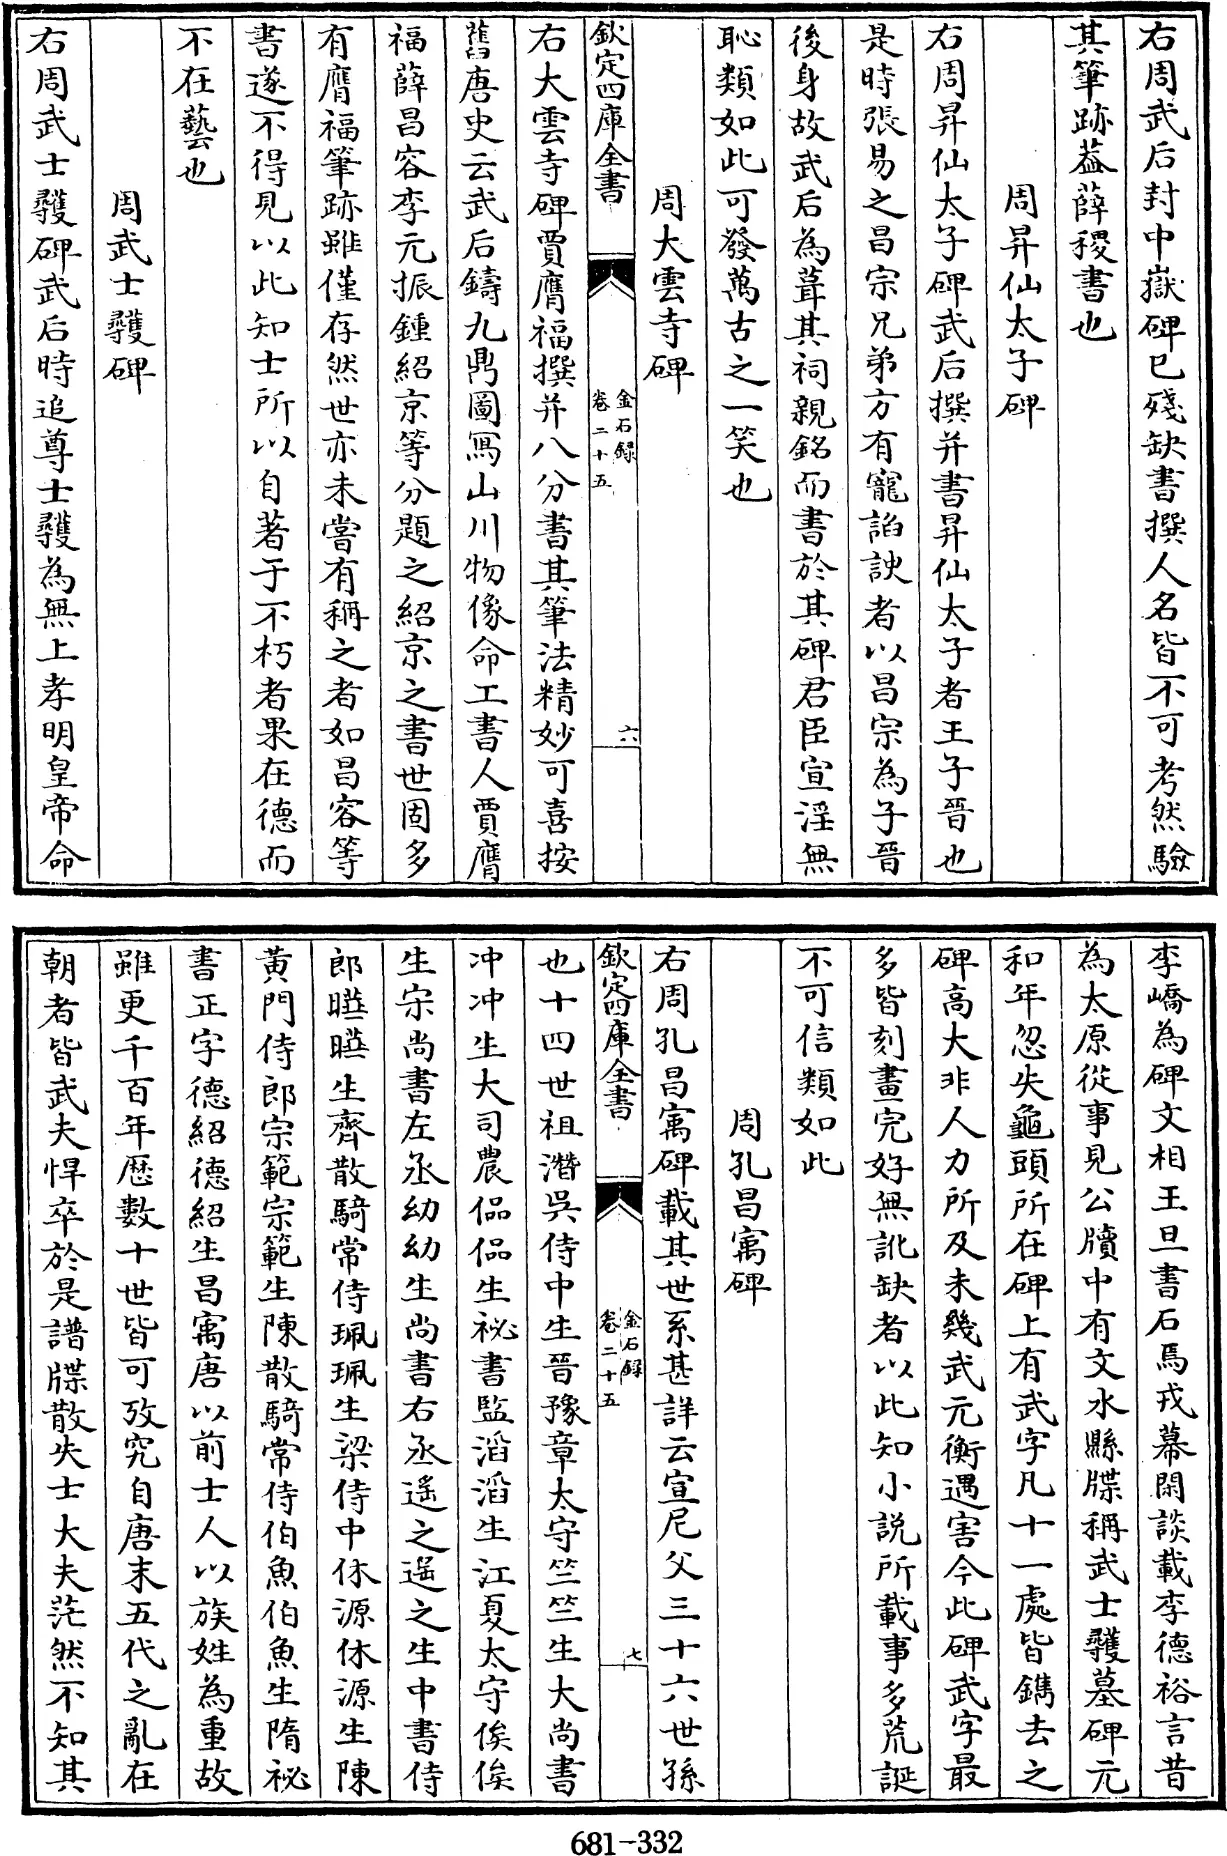 右周武后封中嶽碑已殘缺書撰人名皆不可考然驗
其筆跡葢薛稷書也
周昇仙太子碑
右周昇仙太子碑武后撰并書昇仙太子者王子晉也
是時張易之昌宗兄弟方有寵諂諛者以昌宗為子晉
後身故武后為葺其祠親銘而書於其碑君臣宣淫無
恥類如此可發萬古之一笑也
周大雲寺碑
欽定四庫全書
金石録
卷二十五
六
右大雲寺碑賈膺福撰并八分書其筆法精妙可喜按
舊唐史云武后鑄九鼎圖寫山川物像命工書人賈膺
福薛昌容李元振鍾紹京等分題之紹京之書世固多
有膺福筆跡雖僅存然世亦未嘗有稱之者如昌容等
書遂不得見以此知士所以自著于不朽者果在德而
不在藝也
周武士彠碑
右周武士彠碑武后時追尊士彠為無上孝明皇帝命
李嶠為碑文相王旦書石焉戎幕閒談載李德裕言昔
為太原從事見公牘中有文水縣牒稱武士彠墓碑元
和年忽失龜頭所在碑上有武字凡十一處皆鐫去之
碑高大非人力所及未幾武元衡遇害今此碑武字最
多皆刻畫完好無訛缺者以此知小説所載事多荒誕
不可信類如此
周孔昌寓碑
右周孔昌寓碑載其世系甚詳云宣尼父三十六世孫
欽定四庫全書
金石録
卷二十五
七
也十四世祖潛吳侍中生晉豫章太守竺竺生大尚書
冲冲生大司農侃侃生祕書監滔滔生江夏太守俟俟
生宋尚書左丞幼幼生尚書右丞遥之遥之生中書侍
郎曄曄生齊散騎常侍珮珮生梁侍中休源休源生陳
黃門侍郎宗範宗範生陳散騎常侍伯魚伯魚生隋祕
書正字德紹德紹生昌寓唐以前士人以族姓為重故
雖更千百年歴數十世皆可攷究自唐末五代之亂在
朝者皆武夫悍卒於是譜牒散失士大夫茫然不知其
681-332